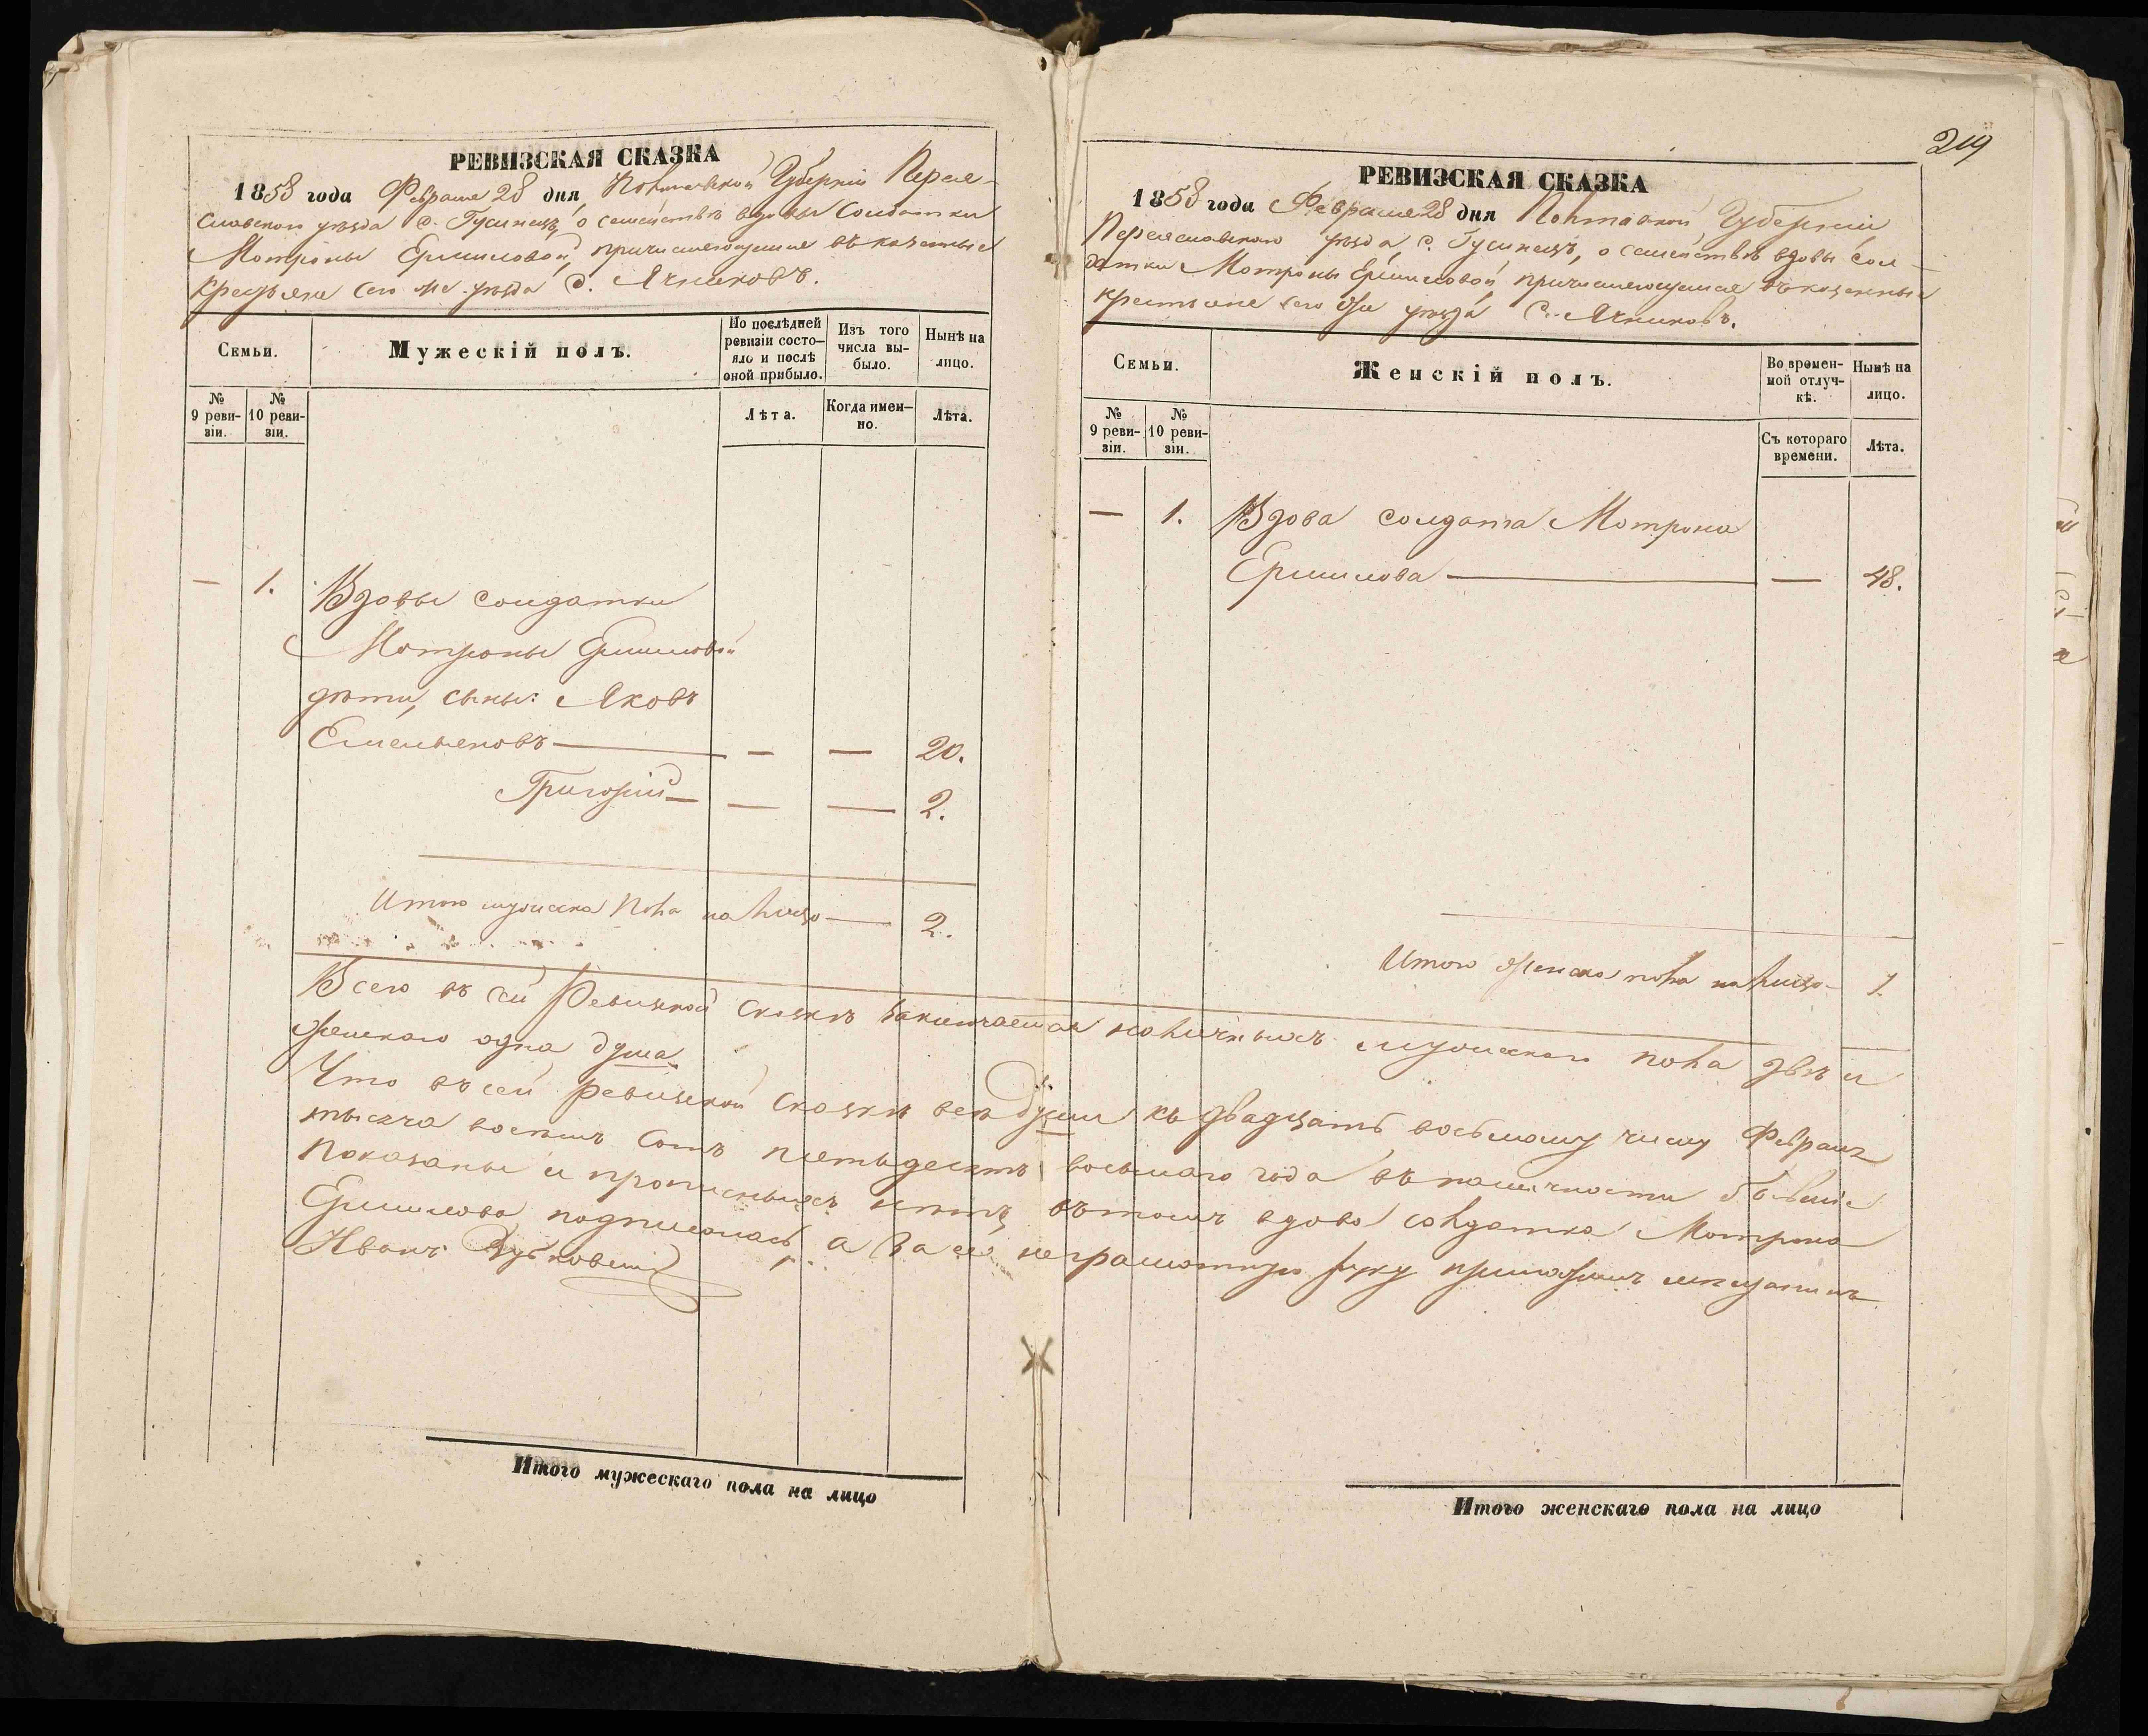 РЕВИЗСКАЯ СКАЗКА
1858 года Февраля 28 дня, Полтавской Губерніи Перея-
славскаго уѣзда с. Гусинецъ, о семействѣ вдовы солдатки
Мотроны Ермиловой, причисляющемся въ казенные
крестьяне сего же уѣзда с. Ячниковъ.
Семьи.
Мужескій полъ.
По послѣдней ревизіи состо-
яло и послѣ оной прибыло.
Изъ того числа вы-
было.
Нынѣ на лицо.
№ 9 реви-
зіи.
№ 10 реви-
зіи.
Лѣта.
Когда имен-
но.
Лѣта.
— 1. Вдовы солдатки
Мотроны Ермиловой
дѣти, сыны: Яковъ
Емельяновъ — — — 20.
Григорій — — — 2.
Итого мужеска пола на лицо — 2.
219
РЕВИЗСКАЯ СКАЗКА
1858 года Февраля 28 дня Полтавской Губерніи
Переяславскаго уѣзда, с. Гусинецъ, о семействѣ вдовы сол-
датки Мотроны Ермиловой, причисляющемся въ казенные
крестьяне сего же уѣзда с. Ячниковъ.
Семьи.
Женскій полъ.
Во времен-
ной отлуч-
кѣ.
Нынѣ на лицо.
№ 9 реви-
зіи.
№ 10 реви-
зіи.
Съ котораго времени.
Лѣта.
— 1. Вдова солдатка Мотрона
Ермилова — — 48.
Итого женска пола на лицо — 1.
Всего въ сей Ревизской сказкѣ заключается наличныхъ мужескаго пола двѣ и
женскаго одна душа.
Что въ сей ревизской сказкѣ всѣ души къ двадцать восьмому числу Февраля
тысяча восемь сотъ пятьдесятъ восьмаго года въ наличности бывшіе
показаны и прописныхъ нѣтъ, въ томъ вдова солдатка Мотрона
Ермилова подписалась, а за нее неграмотную руку приложилъ мѣщанинъ
Иванъ
Итого мужескаго пола на лицо
Итого женскаго пола на лицо